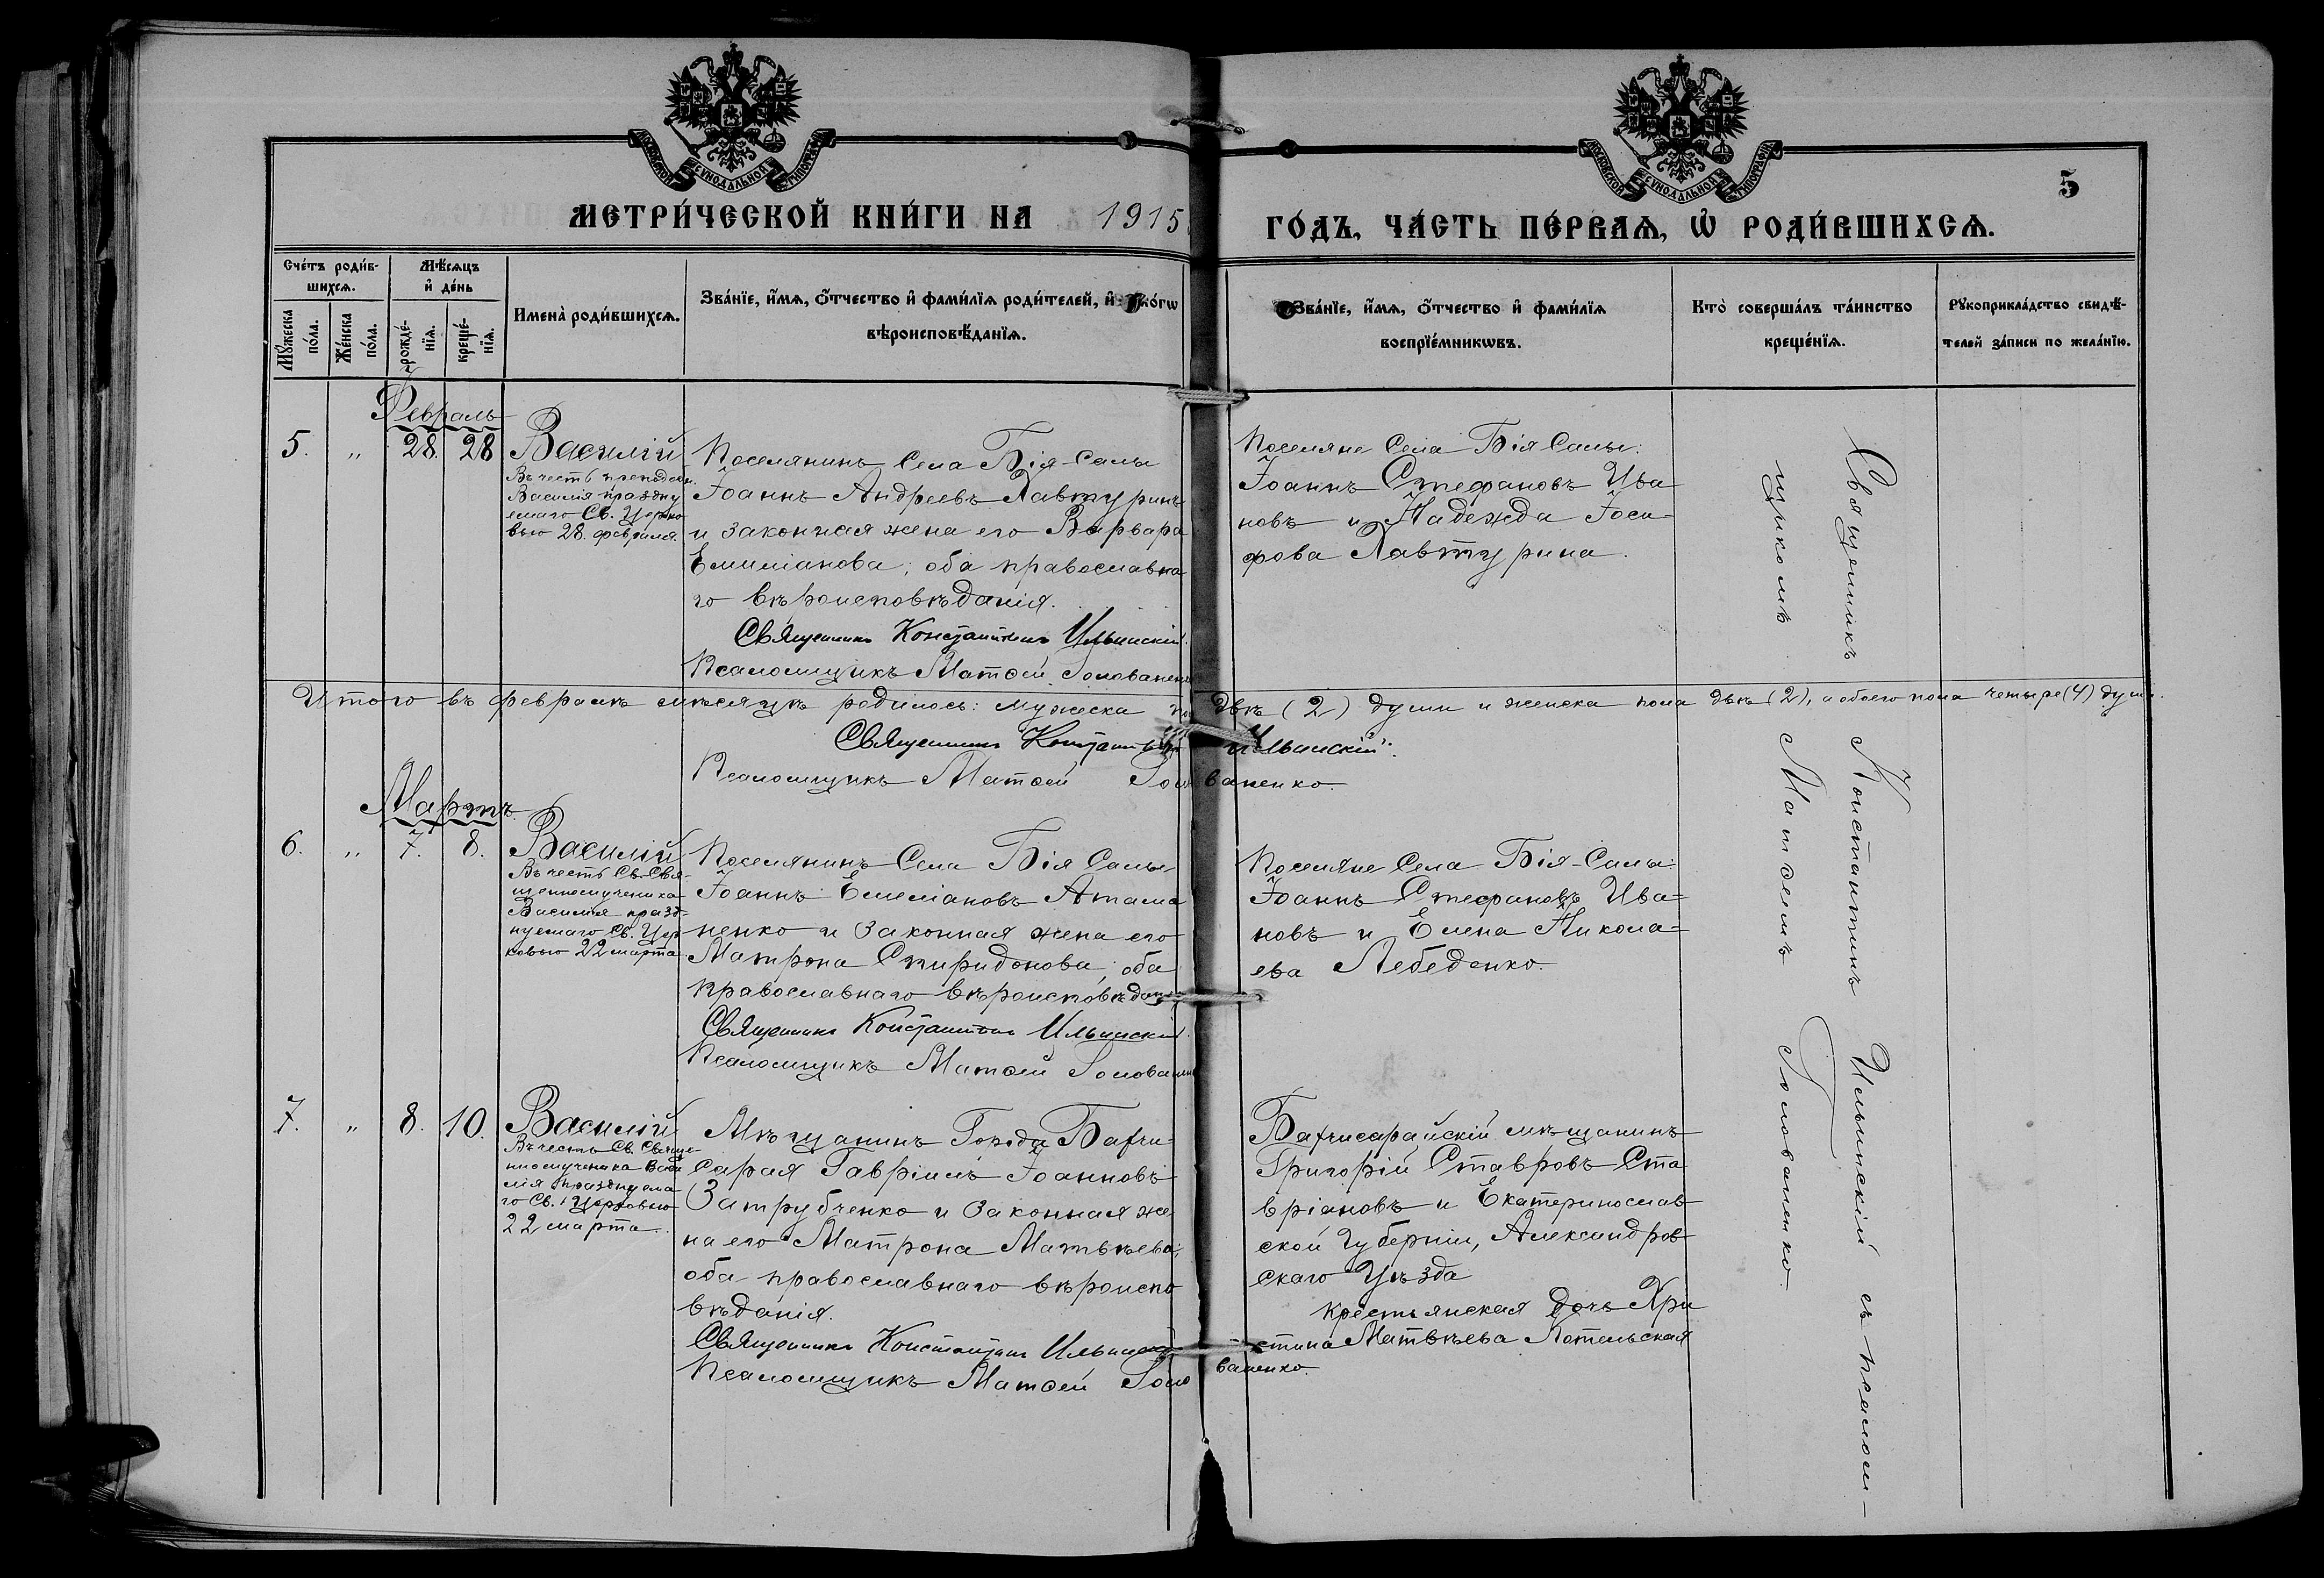 МОСКОВСКОЙ СѴНОДАЛЬНОЙ ТИПОГРАФІИ
МОСКОВСКОЙ СѴНОДАЛЬНОЙ ТИПОГРАФІИ
5
МЕТРИ́ЧЕСКОЙ КНИ́ГИ НА 1915
ГО́ДЪ, ЧА́СТЬ ПЕ́РВАѦ, Ѡ҆ РОДИ́ВШИХСѦ.
Сче́тъ роди́в-
шихсѧ.
Мꙋ́жеска по́ла.
Же́нска по́ла.
Мѣ́сѧцъ
и҆ де́нь
рожде́-
нїѧ.
креще́-
нїѧ.
Имена̀ роди́вшихсѧ.
Зва́нїе, и҆́мѧ, ѻ҆́тчество и҆ фами́лїѧ роди́телей, и҆ ко́гѡ
вѣроисповѣ́данїѧ.
Зва́нїе, и҆́мѧ, ѻ҆́тчество и҆ фами́лїѧ
воспрїе́мникѡвъ.
Кто̀ соверша́лъ та́инство
креще́нїѧ.
Рꙋкоприкла́дство свидѣ́-
телей за́писи по жела́нїю.
Февраль
5. „ 28. 28
Василій
Въ честь преподобн.
Василія праздну
емаго Св. Церко
вью 28. февраля.
Поселянинъ Села Бія-Салы
Іоаннъ Андреевъ Хавтуринъ
и законная жена его Варвара
Емиліанова; оба православна
го вѣроисповѣданія.
Священникъ Константинъ Ильинскій.
Псаломщикъ Матѳей Голованенко
Поселяне Села Бія Салы:
Іоаннъ Стефановъ Ива
новъ и Надежда Іоси-
фова Хавтурина.
Итого въ февралѣ мѣсяцѣ родилось: мужеска по двѣ (2) души и женска пола двѣ (2), и обоего пола четыре (4) души.
Священникъ Константинъ Ильинскій.
Псаломщикъ Матѳей Голованенко.
Мартъ
6. „ 7. 8.
Василій
Въ честь Св. Свя-
щенномученика
Василія празд-
нуемаго Св. Цер
ковью 22 марта.
Поселянинъ Села Бія Салы
Іоаннъ Емеліановъ Атама
ненко и законная жена его
Матрона Спиридонова; оба
православнаго вѣроисповѣдан
Священникъ Константинъ Ильинскій.
Псаломщикъ Матѳей Голованен
Поселяне Села Бія-Салы:
Іоаннъ Стефановъ Ива=
новъ и Елена Никола=
ева Лебеденко.
7. „ 8. 10.
Василій
Въ честь Св. Свяще-
нномученика Васи
лія празднуема
го Св. Церковью
22 марта.
Мѣщанинъ Города Бахчи-
сарая Гавріилъ Іоанновъ
Затрубченко и законная же
на его Матрона Матвѣева;
оба православнаго вѣроиспо
вѣданія.
Священникъ Константинъ Ильинскій
Псаломщикъ Матѳей Голованенко.
Бахчисарайскій мѣщанинъ
Григорій Ставровъ Ста
вріановъ и Екатеринослав
ской Губерніи, Александров
скаго Уѣзда
крестьянская дочь Хри
стина Матвѣева Котельская
Священникъ Константинъ Ильинскій съ псалом-
щикомъ Матѳеемъ Голованенко.